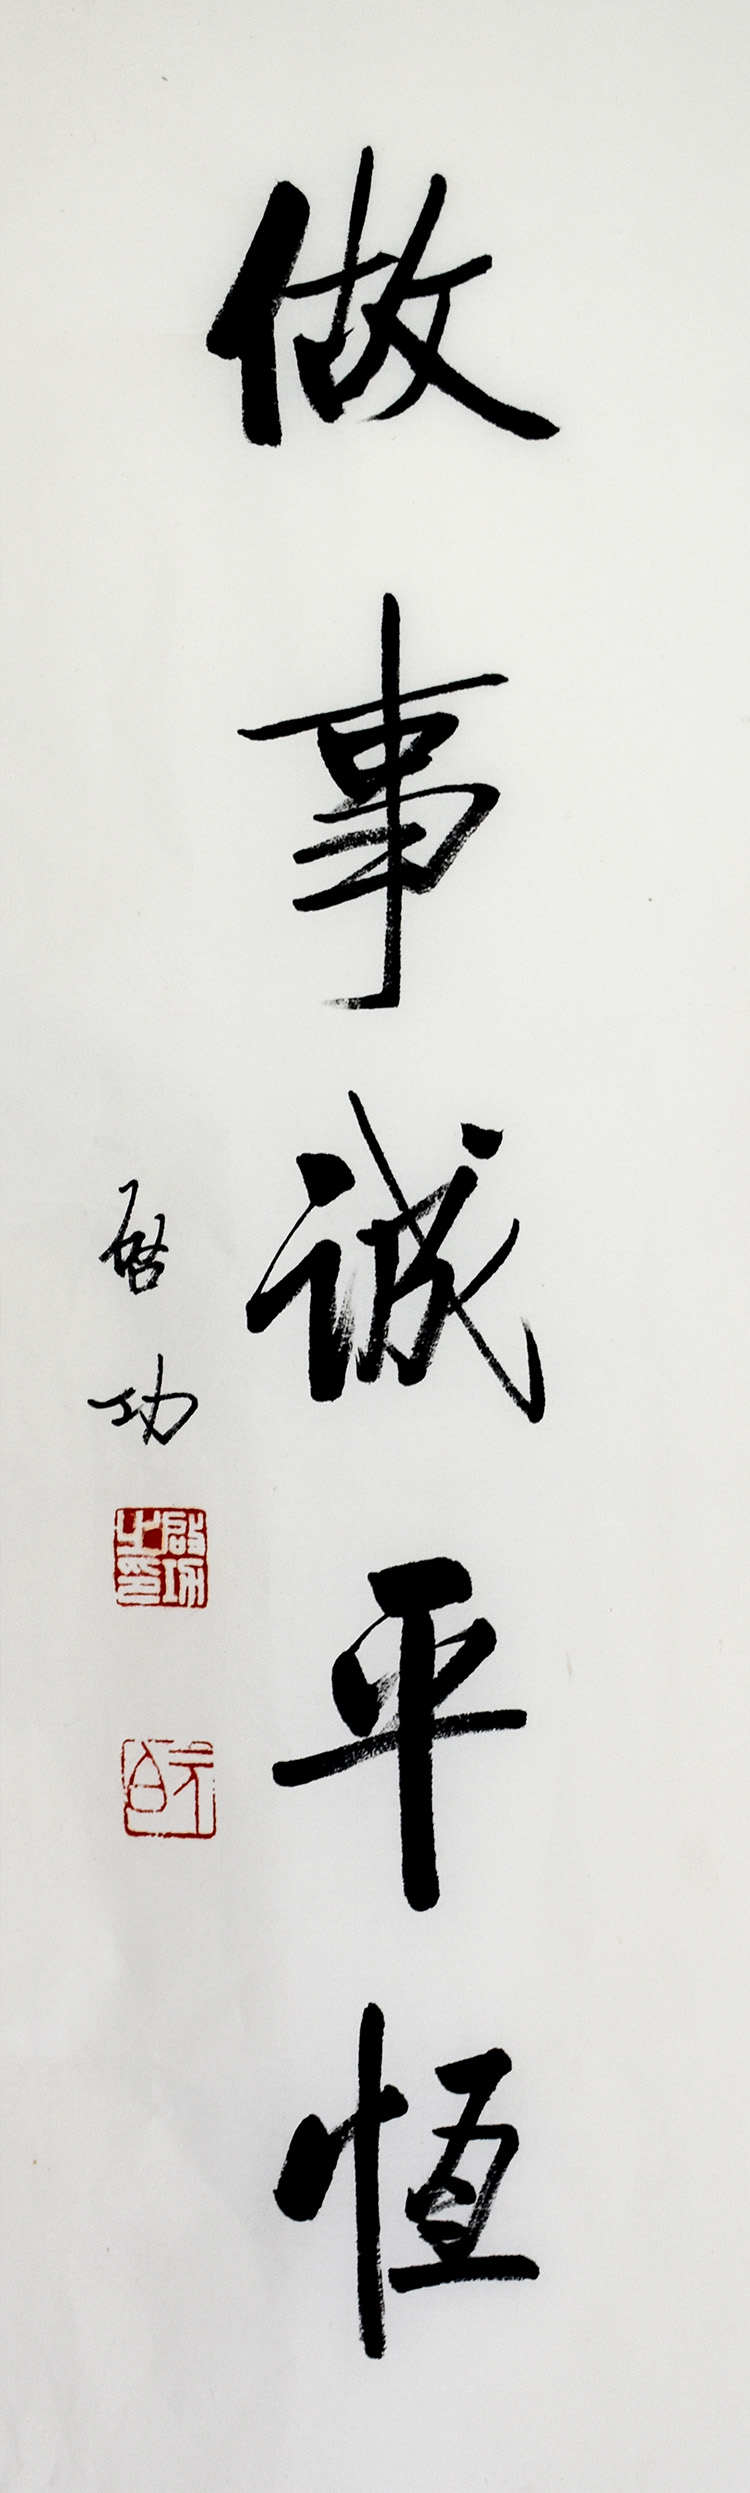 做事诚平恒
启功
启功之印
元白